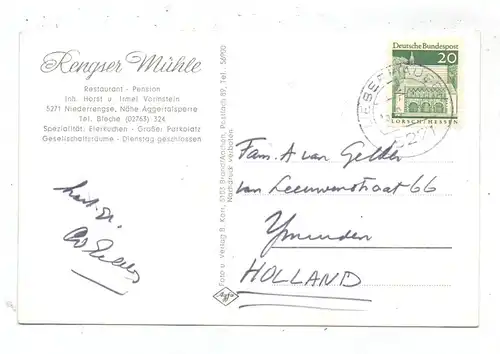 Rengser Mühle
Restaurant - Pension
Inh. Horst u. Irmel Vormstein
5271 Niederrengse, Nähe Aggertalsperre
Tel. Bleche (02763) 324
Spezialität: Eierkuchen - Großer Parkplatz
Gesellschaftsräume - Dienstag geschlossen
Foto u. Verlag B. Korr, 5103 Brand/Aachen, Postfach 89, Tel.: 5690
Nachdruck verboten
Agfa
Deutsche Bundespost
20
LORSCH/HESSEN
5271
Fam. A van Gelder
van Leeuwenstraat 66
Ymuiden
HOLLAND